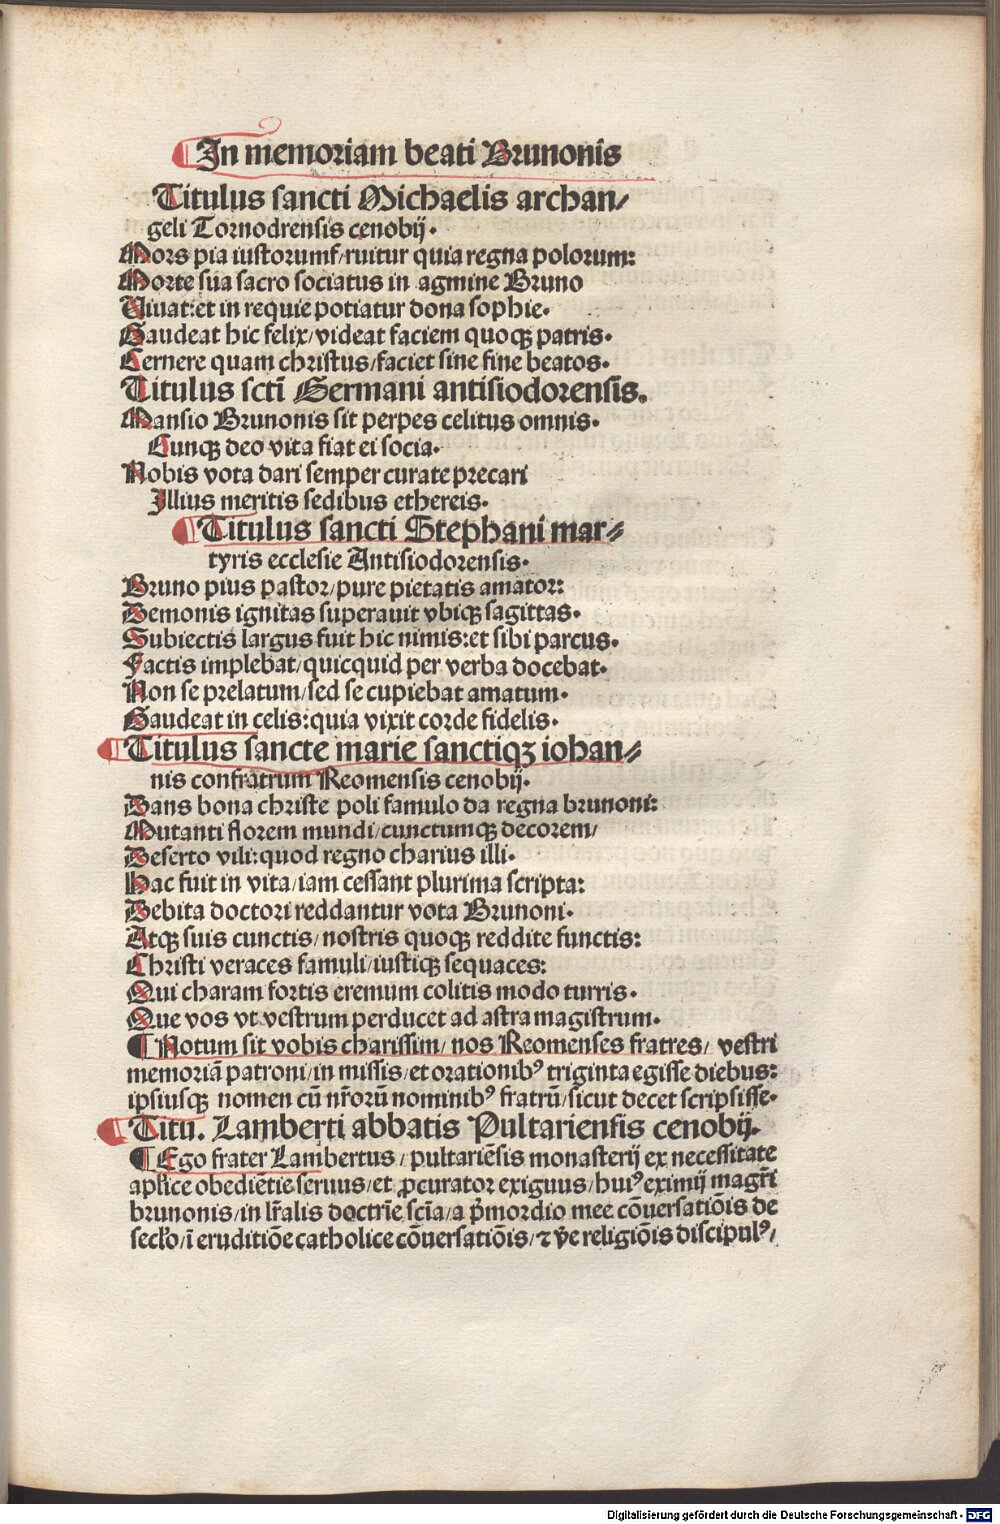 In memoriam beati Brunonis
Titulus sancti Michaelis archan/
geli Tornodrensis cenobij.
Mors pia iustorum f/ruitur quia regna polorum:
Morte sua sacro sociatus in agmine Bruno
Uiuat: et in requie potiatur dona sophie.
Gaudeat hic felix/ videat faciem quoqȝ patris.
Cernere quam christus/ faciet sine fine beatos.
Titulus sctī Germani antisiodorensis.
Mansio Brunonis sit perpes celitus omnis.
Cunqȝ deo vita fiat ei socia.
Nobis vota dari semper curate precari
Illius meritis sedibus ethereis.
Titulus sancti Stephani mar⸗
tyris ecclesie Antisiodorensis.
Bruno pius pastor/ pure pietatis amator:
Demonis ignitas superauit vbiqȝ sagittas.
Subiectis largus fuit hic nimis: et sibi parcus.
Factis implebat/ quicquid per verba docebat.
Non se prelatum/ sed se cupiebat amatum.
Gaudeat in celis: quia vixit corde fidelis.
Titulus sancte marie sanctiqȝ iohan⸗
nis confratrum Reomensis cenobij.
Dans bona christe poli famulo da regna brunoni:
Mutanti florem mundi/ cunctumqȝ decorem/
Deserto vili: quod regno charius illi.
Hac fuit in vita/ iam cessant plurima scripta:
Debita doctori reddantur vota Brunoni.
Atqȝ suis cunctis/ nostris quoqȝ reddite functis:
Christi veraces famuli/ iustiqȝ sequaces:
Qui charam fortis eremum colitis modo turris.
Que vos vt vestrum perducet ad astra magistrum.
¶ Notum sit vobis charissim/ nos Reomenses fratres/ vestri
memoriā patroni/ in missis/ et orationibꝰ triginta egisse diebus:
ipsiusqȝ nomen cū nr̄orū nominibꝰ fratrū/ sicut decet scripsisse.
Titu. Lamberti abbatis Pultariensis cenobij.
¶ Ego frater Lambertus/ pultariēsis monasterij ex necessitate
apl̄ice obediētie seruus/ et ꝓcurator exiguus/ huiꝰ eximij magr̄i
brunonis/ in lr̄alis doctrīe scīa/ a p̄mordio mee cōuersatiōis de
secl̄o/ ī eruditiōe catholice cōuersatiōis/ ⁊ v̄e religiōis discipulꝰ/
Digitalisierung gefördert durch die Deutsche Forschungsgemeinschaft - DFG